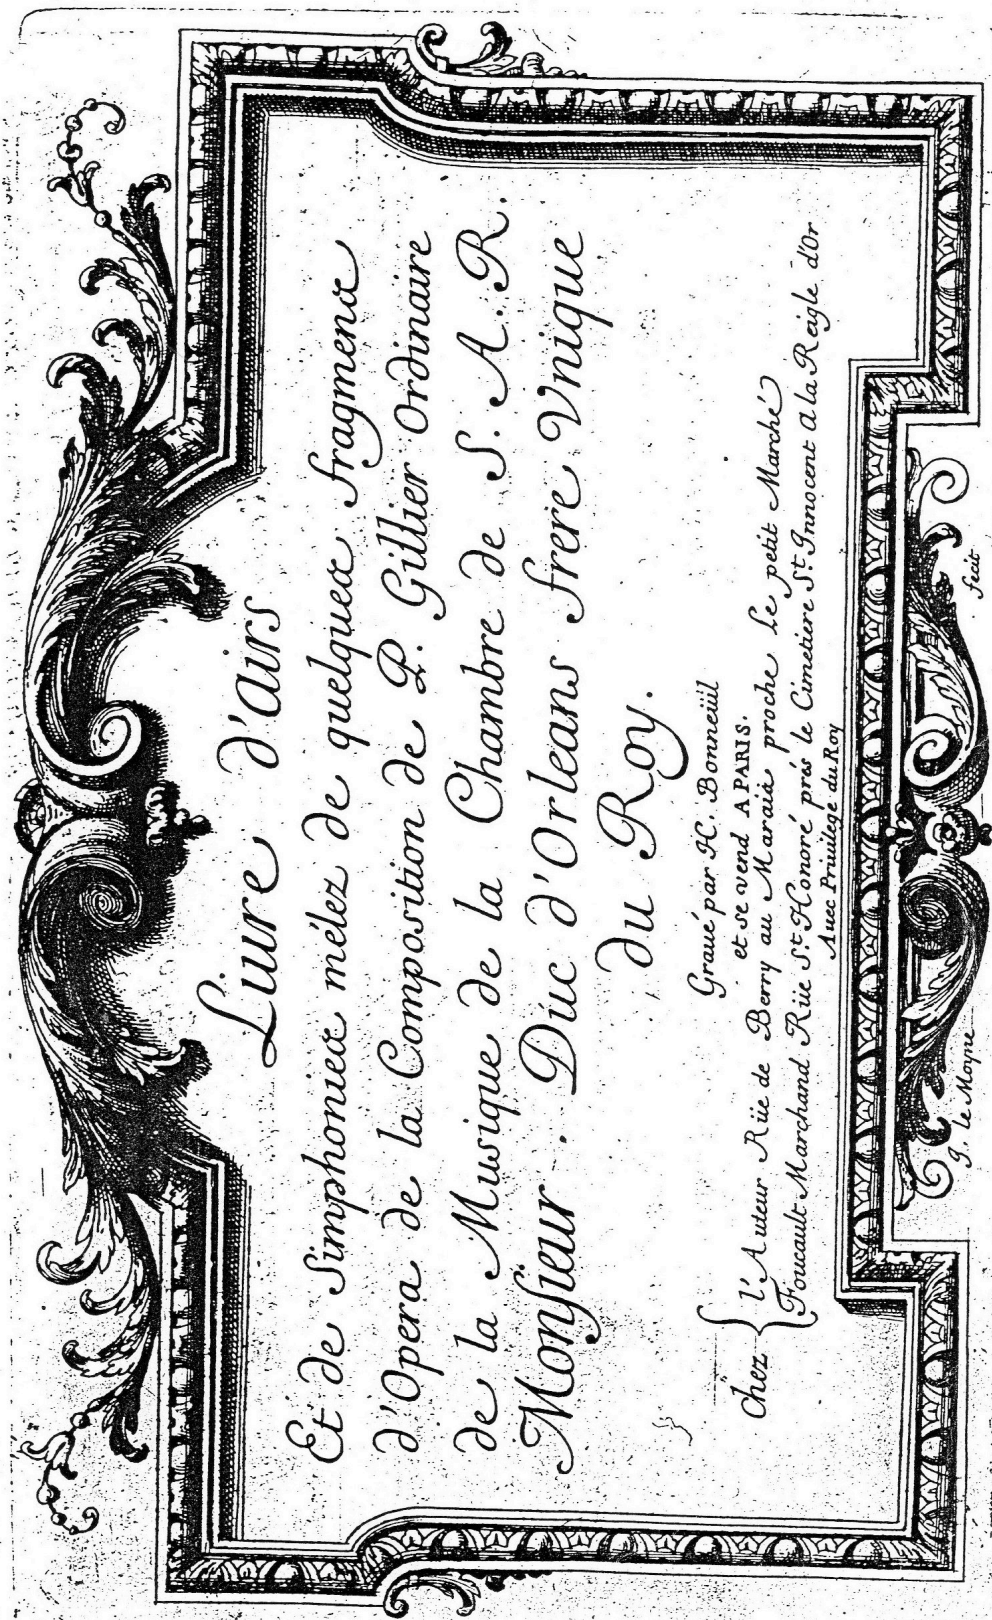 Liure d'Airs
Et de Simphonies mélez de quelques fragmens
d'Opera de la Composition de P. Gillier Ordinaire
de la Musique de la Chambre de S. A. R.
Monsieur. Duc d'Orleans frere Vnique
du Roy.
Graué par H. Bonneüil
et se vend A PARIS.
Chez { l'Auteur Rüe de Berry au Marais proche Le petit Marché
Foucault Marchand Rüe St. Honoré prés le Cimetiere St. Innocent a la Reigle d'Or
Auec Priuilege du Roy
J. le Moyne fecit